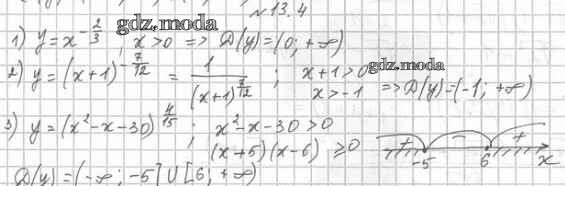 №13.4
gdz.moda
1) y=x^{-2/3}, x>0 => D(y)=(0; +∞)
gdz.moda
2) y=(x+1)^{-7/12} = 1/(x+1)^{7/12} ; x+1>0
x>-1 => D(y)=(-1; +∞)
3) y=(x²-x-30)^{4/15} ; x²-x-30>0
(x+5)(x-6) ≥0
+ - +
-5 6 x
D(y)=(-∞; -5]∪[6; +∞)